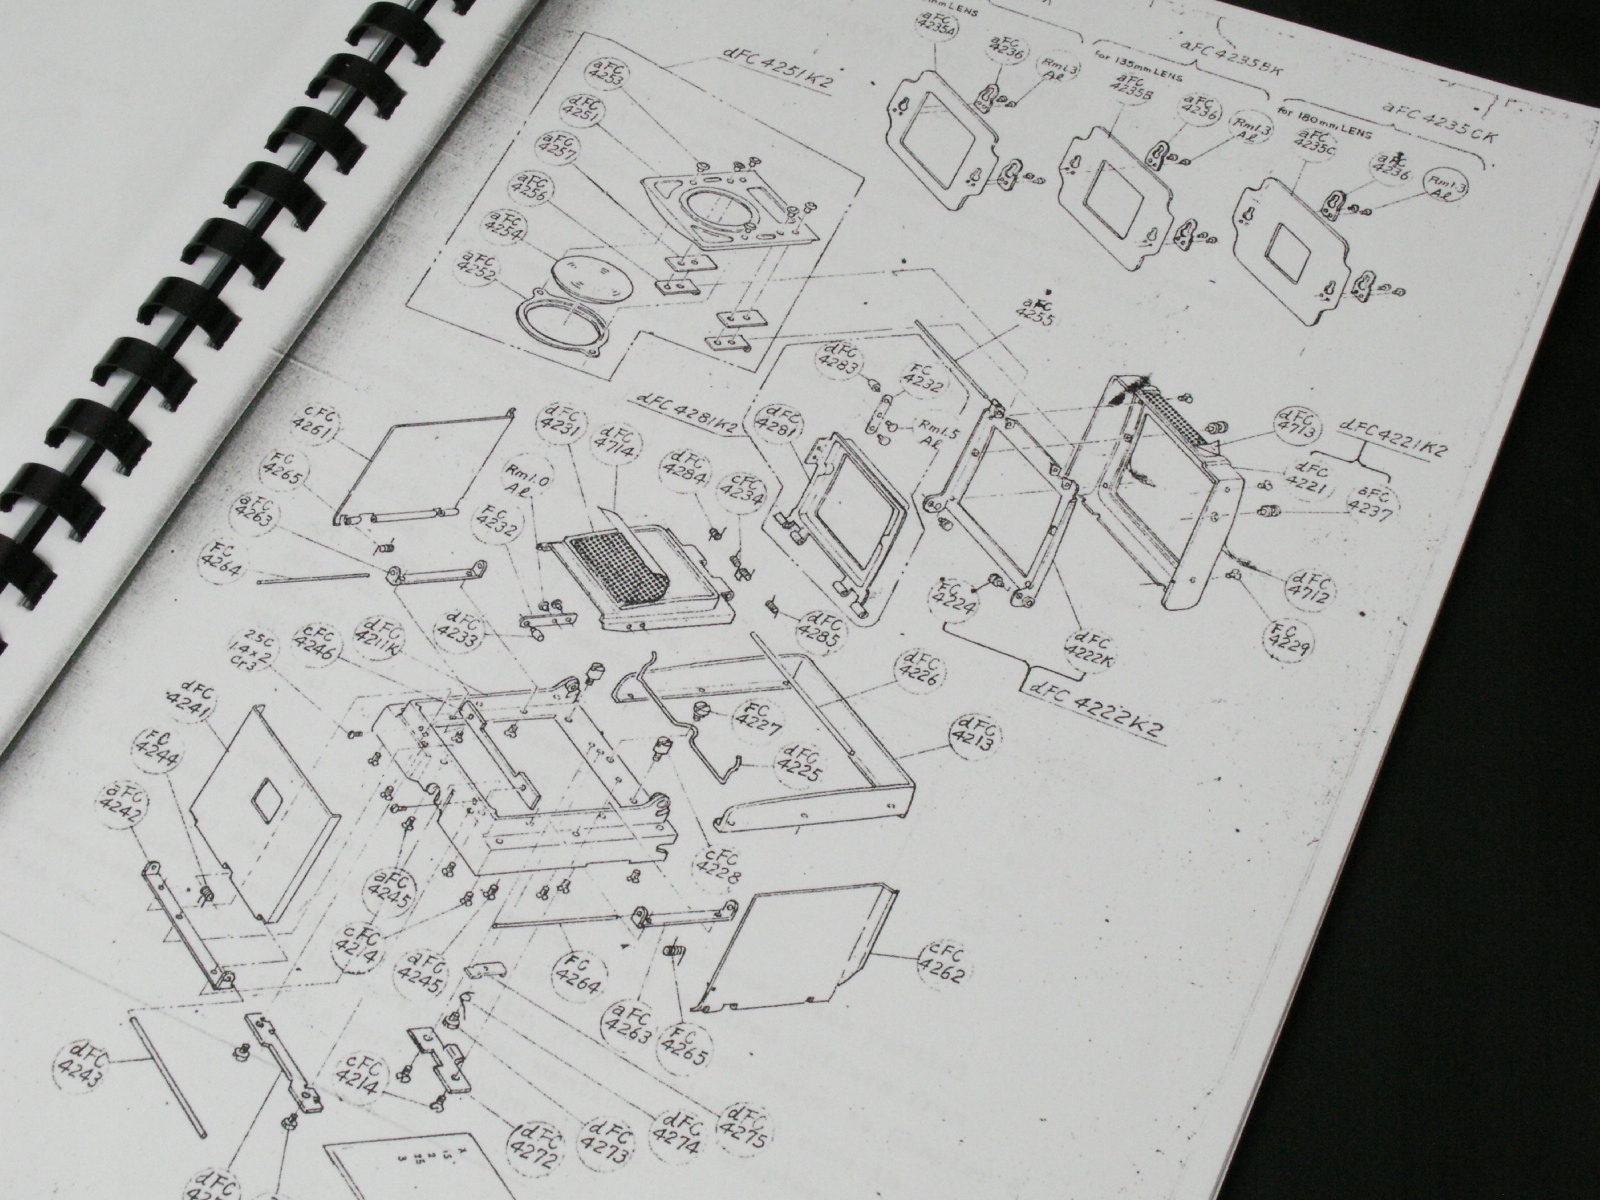 mm LENS
aFC
4235A
aFC
4236
Rm1.3
Al
aFC 4235BK
for 135mm LENS
aFC
4235B
aFC
4236
Rm1.3
Al
aFC 4235CK
for 180mm LENS
aFC
4235C
aFC
4236
Rm1.3
Al
dFC 4251K2
aFC
4253
dFC
4251
aFC
4257
aFC
4256
aFC
4254
aFC
4252
aFC
4255
dFC
4283
FC
4232
Rm1.5
Al
dFC 4281K2
dFC
4281
dFC
4713
dFC 4221K2
dFC
4221
aFC
4237
dFC
4712
FC
4229
FC
4224
dFC
4222K
dFC 4222K2
cFC
4261
FC
4265
aFC
4263
FC
4264
dFC
4231
dFC
4714
Rm1.0
Al
FC
4232
dFC
4284
cFC
4234
dFC
4233
dFC
4285
25C
1.4×2
Cr3
cFC
4246
dFC
4211K
dFC
4226
FC
4227
dFC
4225
dFC
4213
dFC
4241
FC
4244
aFC
4242
aFC
4245
cFC
4214
aFC
4245
cFC
4228
FC
4264
aFC
4263
FC
4265
cFC
4262
dFC
4243
cFC
4214
dFC
4272
dFC
4273
dFC
4274
dFC
4275
dFC